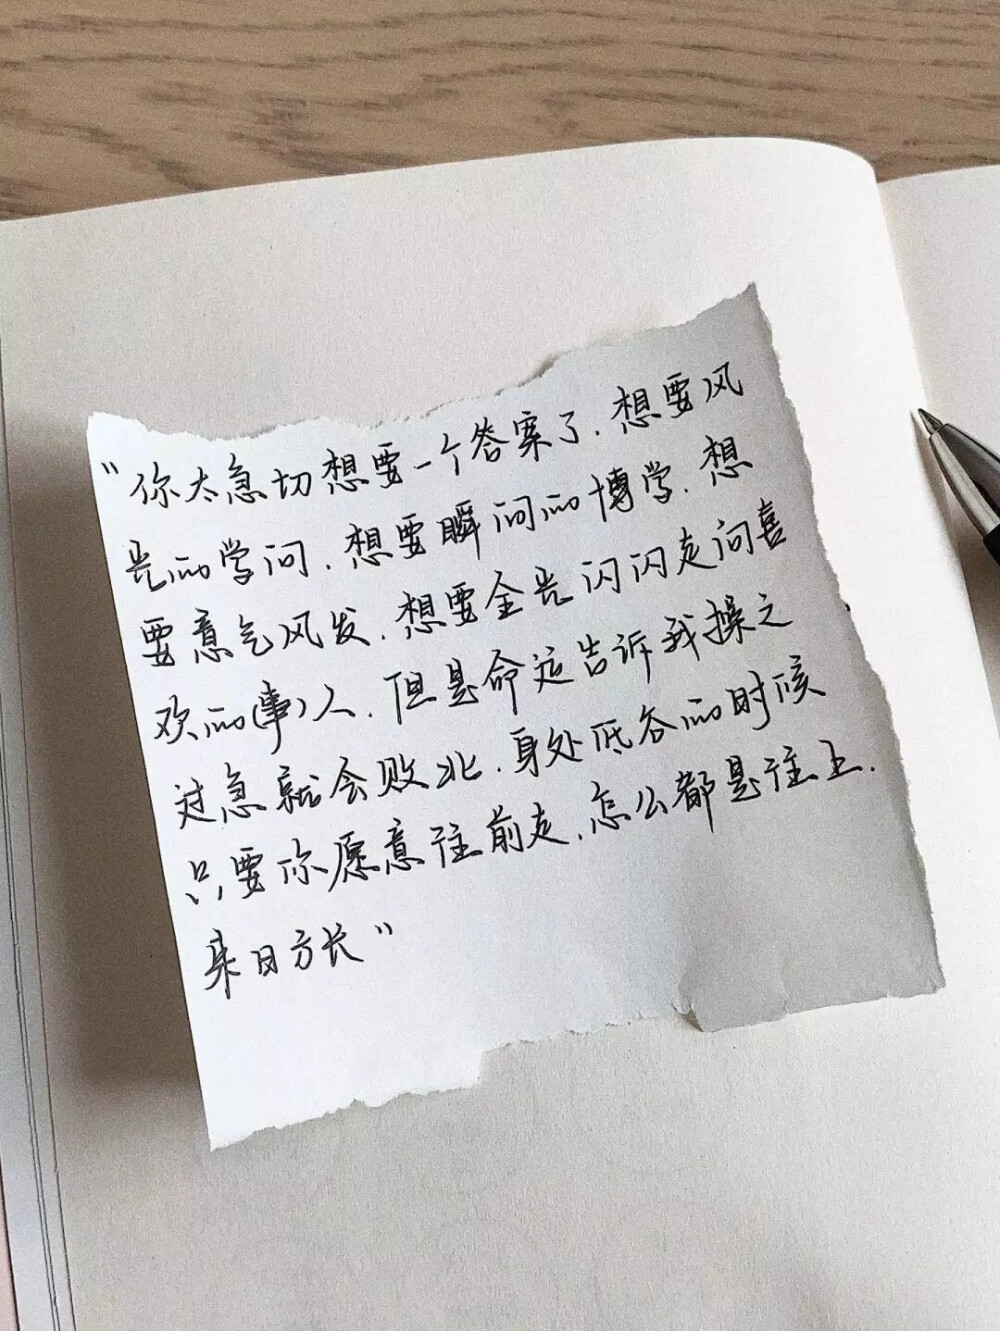 “你太急切想要一个答案了.想要风
光的学问.想要瞬间的博学.想
要意气风发.想要金光闪闪走向喜
欢的(事)人.但是命运告诉我操之
过急就会败北.身处低谷的时候
只要你愿意往前走.怎么都是往上.
来日方长”